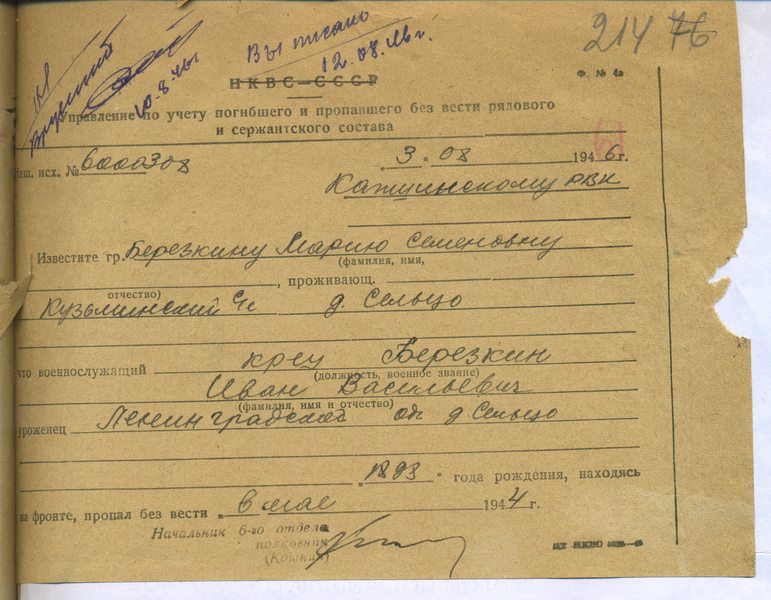 214 76
Выписано
12.08.46 г.
10.8.46
НКВС—СССР
Ф. № 4а
Управление по учету погибшего и пропавшего без вести рядового
и сержантского состава
Наш. исх. № 6000308
3. 08 1946 г.
Кашинскому РВК
Известите гр. Березкину Марию Семеновну
(фамилия, имя,
, проживающ.
отчество)
Кузьминский с/с д. Сельцо
что военнослужащий кр-ец Березкин
(должность, военное звание)
Иван Васильевич
(фамилия, имя и отчество)
уроженец Ленинградской об д. Сельцо
1893 года рождения, находясь
на фронте, пропал без вести в мае 1944 г.
Начальник 6-го отдела
полковник
(Кошкин)